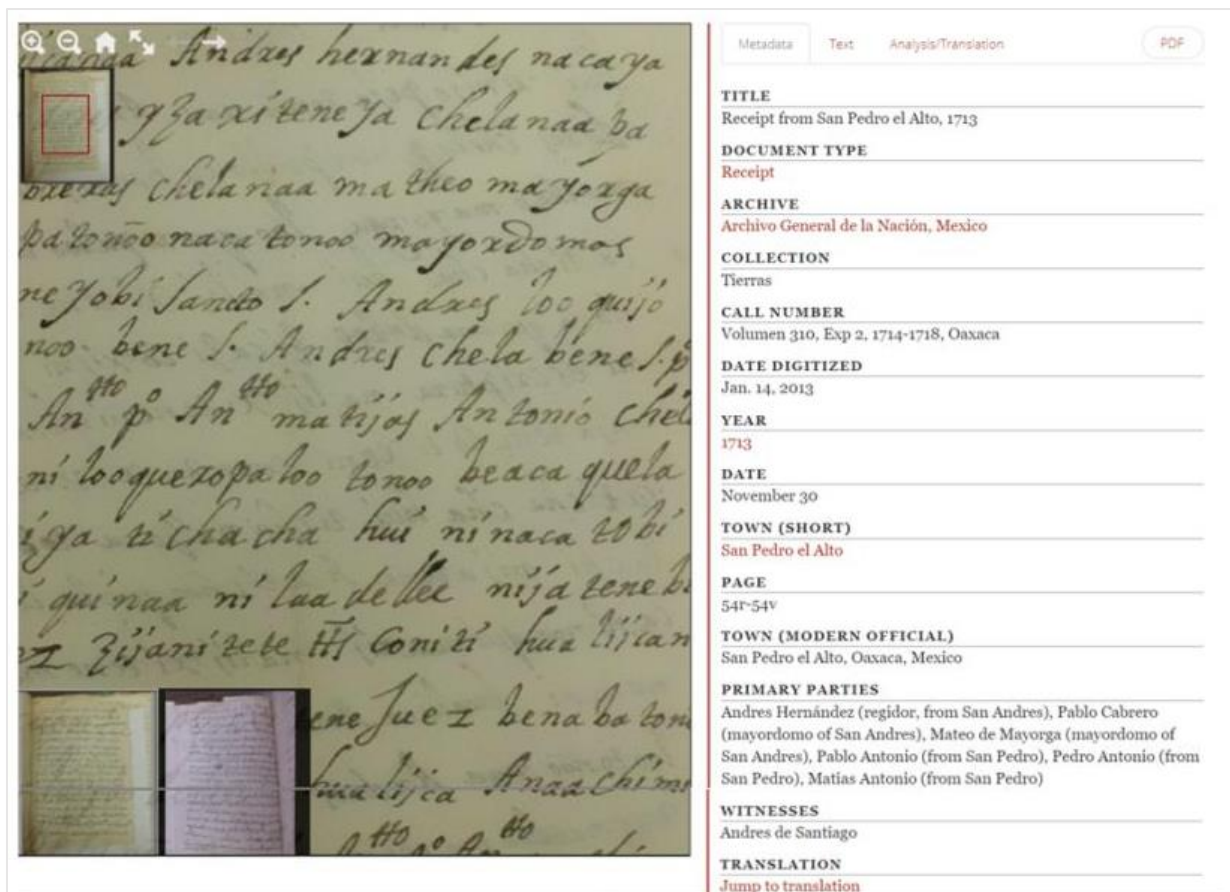 Andres hernandes nacaya
yza xitene ya chelanaa pa
breras chelanaa matheo mayorga
pa tonoo naca tonoo mayordomos
ne yobi Santo S. Andres loo quijo
noo bene S. Andres chela bene S. pº
An^tto pº An^tto matijas Antonio chela
ni looqueropa loo tonoo beaca quela
ti chacha hui ninaca tobi
quinaa ni laa de llee nija tene
zijani tete tts Coniti hua lijcan
tene Juez bena ba
hua lijca Anaa chi
tto tto
Metadata
Text
Analysis/Translation
PDF
TITLE
Receipt from San Pedro el Alto, 1713
DOCUMENT TYPE
Receipt
ARCHIVE
Archivo General de la Nación, Mexico
COLLECTION
Tierras
CALL NUMBER
Volumen 310, Exp 2, 1714-1718, Oaxaca
DATE DIGITIZED
Jan. 14, 2013
YEAR
1713
DATE
November 30
TOWN (SHORT)
San Pedro el Alto
PAGE
54r-54v
TOWN (MODERN OFFICIAL)
San Pedro el Alto, Oaxaca, Mexico
PRIMARY PARTIES
Andres Hernández (regidor, from San Andres), Pablo Cabrero
(mayordomo of San Andres), Mateo de Mayorga (mayordomo of
San Andres), Pablo Antonio (from San Pedro), Pedro Antonio (from
San Pedro), Matias Antonio (from San Pedro)
WITNESSES
Andres de Santiago
TRANSLATION
Jump to translation